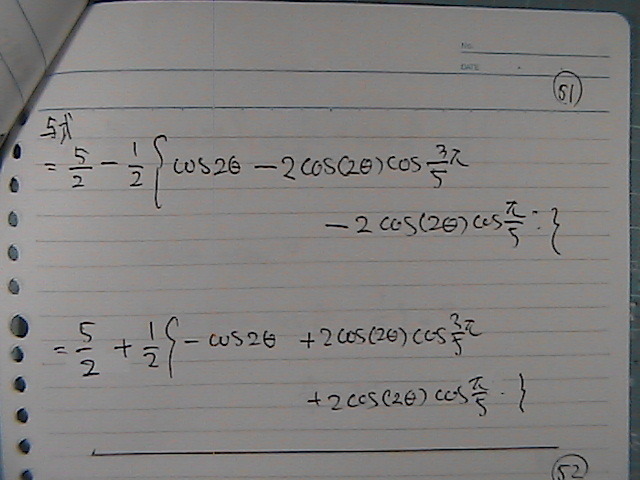 NO.
DATE
51
与式
= 5/2 - 1/2 { cos2θ - 2cos(2θ)cos 3/5 π
- 2cos(2θ)cos π/5 }
= 5/2 + 1/2 { - cos2θ + 2cos(2θ)cos 3/5 π
+ 2cos(2θ)cos π/5 . }
52